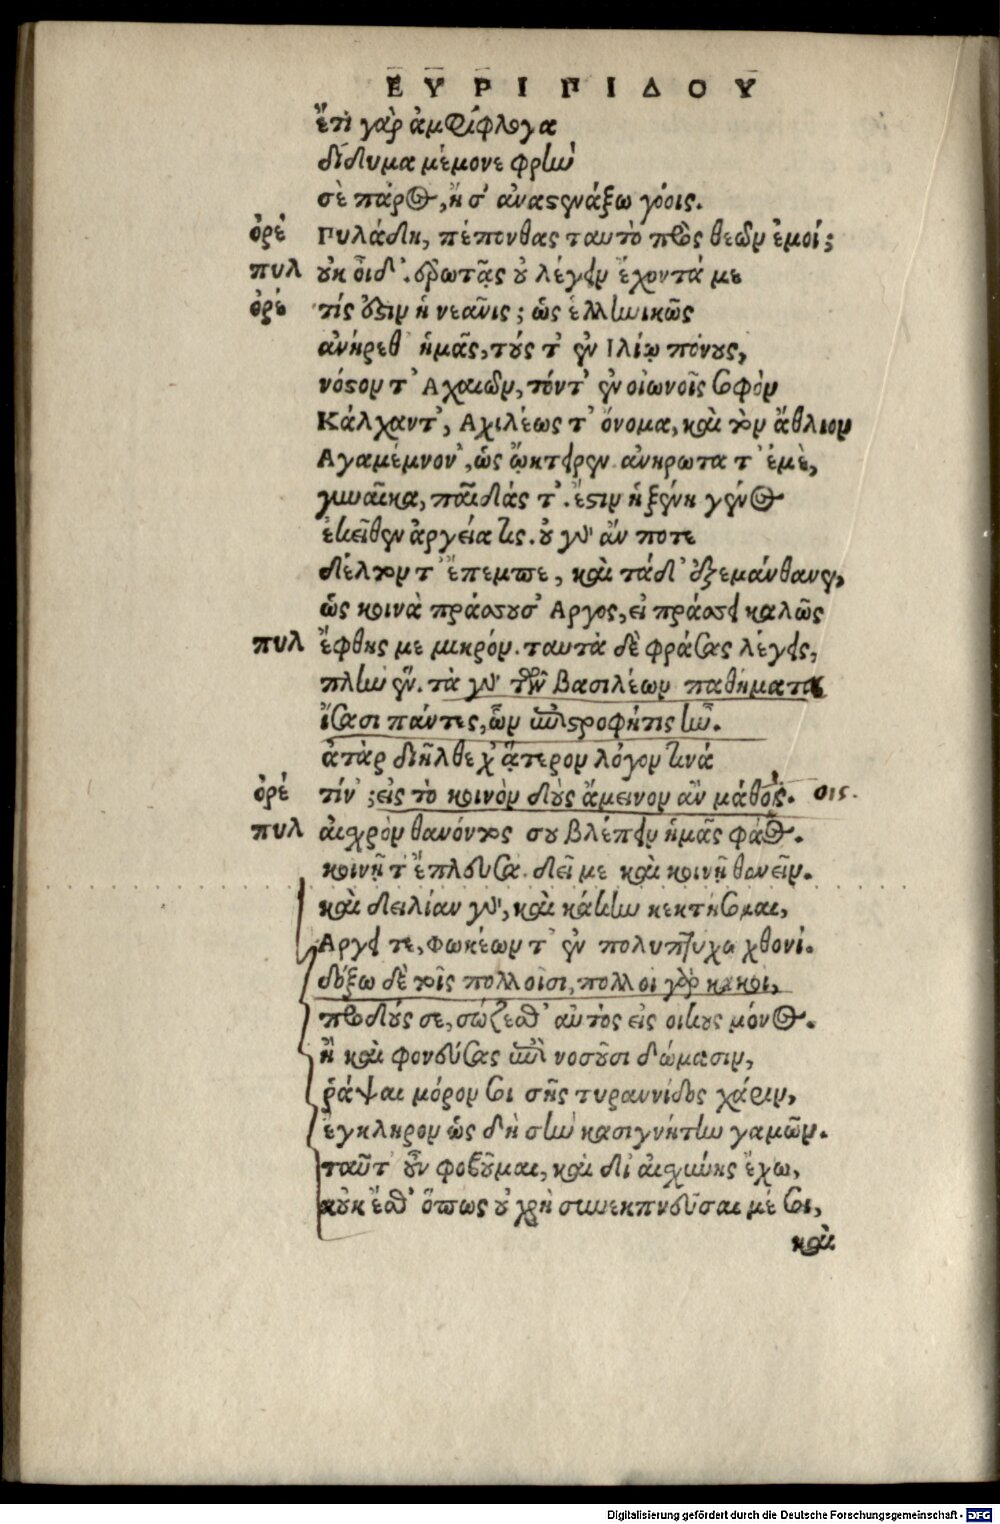 ΕΥΡΙΠΙΔΟΥ
ἔτι γὰρ ἀμφίφλογα
δίδυμα μέμονε φρὴν
σὲ πάρος, ἢ σ' ἀναστενάξω γόοις.
ὀρέ Πυλάδη, πέπονθας ταυτὸ πρὸς θεῶν ἐμοί;
πυλ οὐκ οἶδ'. ἐρωτᾷς οὐ λέγειν ἔχοντά με
ὀρέ τίς ἐστιν ἡ νεᾶνις; ὡς ἑλληνικῶς
ἀνήρεθ' ἡμᾶς, τούς τ' ἐν Ιλίῳ πόνους,
νόστον τ' Αχαιῶν, τόντ' ἐν οἰωνοῖς σοφὸν
Κάλχαντ', Αχιλέως τ' ὄνομα, καὶ τὸν ἄθλιον
Αγαμέμνον', ὡς ᾤκτειρεν ἀνηρωτα τ' ἐμὲ,
γυναῖκα, παῖδάς τ'. ἔστιν ἡ ξένη γένος
ἐκεῖθεν ἀργεία τις. οὐ γὰρ ἄν ποτε
δέλτον τ' ἔπεμπε, καὶ τάδ' ἐξεμάνθανεν,
ὡς κοινὰ πράσσουσ' Αργος, εἰ πράσσει καλῶς
πυλ ἔφθης με μικρόν. ταυτὰ δὲ φράσας λέγεις,
πλὴν ἕν. τὰ γὰρ τῶν βασιλέων παθήματα
ἴσασι πάντες, ὧν ἐπιστροφή τις ἦν.
ἀτὰρ διῆλθε χἄτερον λόγον τινά
ὀρέ τίν'; εἰς τὸ κοινὸν δοὺς ἄμεινον ἂν μάθοις. οις.
πυλ αἰσχρὸν θανόντος σου βλέπειν ἡμᾶς φάος.
κοινῇ τ' ἔπλευσα δεῖ με καὶ κοινῇ θανεῖν.
καὶ δειλίαν γὰρ, καὶ κάκην κεκτήσομαι,
Αργει τε, Φωκέων τ' ἐν πολυπτύχῳ χθονί.
δόξω δὲ τοῖς πολλοῖσι, πολλοὶ γὰρ κακοί,
προδούς σε, σώζεσθ' αὐτὸς εἰς οἴκους μόνος.
ἢ καὶ φονεύσας ἐπὶ νοσοῦσι δώμασιν,
ῥάψαι μόρον σοι σῆς τυραννίδος χάριν,
ἔγκληρον ὡς δὴ σὴν κασιγνήτην γαμῶν.
ταῦτ' οὖν φοβοῦμαι, καὶ δι' αἰσχύνης ἔχω,
κοὐκ ἔσθ' ὅπως οὐ χρὴ συνεκπνεῦσαι μέ σοι,
καὶ
Digitalisierung gefördert durch die Deutsche Forschungsgemeinschaft - DFG